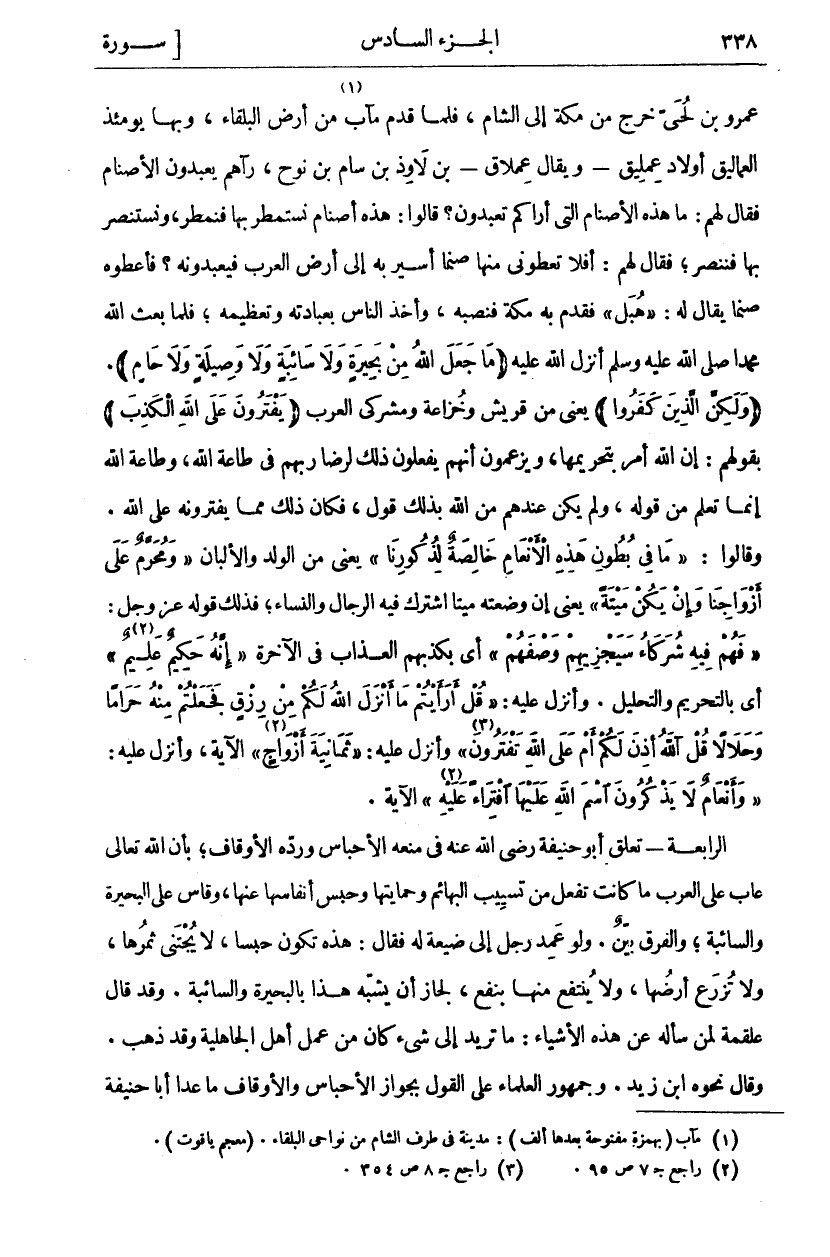 ٣٣٨ الجزء السادس [ سورة
عمرو بن لُحَىّ خرج من مكة إلى الشام ، فلما قدم مآب (١) من أرض البلقاء ، وبها يومئذ
العماليق أولاد عِمليق — ويقال عِملاق — بن لَاوِذ بن سام بن نوح ، رآهم يعبدون الأصنام
فقال لهم : ما هذه الأصنام التى أراكم تعبدون؟ قالوا : هذه أصنام نستمطر بها فنمطر، ونستنصر
بها فننصر ؛ فقال لهم : أفلا تعطونى منها صنما أسير به إلى أرض العرب فيعبدونه ؟ فأعطوه
صنما يقال له : «هُبَل» فقدم به مكة فنصبه ، وأخذ الناس بعبادته وتعظيمه ؛ فلما بعث الله
محمدا صلى الله عليه وسلم أنزل الله عليه ﴿مَا جَعَلَ اللهُ مِنْ بَحِيرَةٍ وَلَا سَائِبَةٍ وَلَا وَصِيلَةٍ وَلَا حَامٍ﴾ .
﴿وَلَكِنَّ الَّذِينَ كَفَرُوا﴾ يعنى من قريش وخُزاعة ومشركى العرب ﴿يَفْتَرُونَ عَلَى اللهِ الْكَذِبَ﴾
بقولهم : إن الله أمر بتحريمها، ويزعمون أنهم يفعلون ذلك لرضا ربهم فى طاعة الله، وطاعة الله
إنما تعلم من قوله ، ولم يكن عندهم من الله بذلك قول ، فكان ذلك مما يفترونه على الله .
وقالوا : « مَا فِى بُطُونِ هَذِهِ الْأَنْعَامِ خَالِصَةٌ لِذُكُورِنَا » يعنى من الولد والألبان « وَمُحَرَّمٌ عَلَى
أَزْوَاجِنَا وَإِنْ يَكُنْ مَيْتَةً» يعنى إن وضعته ميتا اشترك فيه الرجال والنساء؛ فذلك قوله عز وجل :
« فَهُمْ فِيهِ شُرَكَاءُ سَيَجْزِيهِمْ وَصْفَهُمْ » أى بكذبهم العذاب فى الآخرة « إِنَّهُ حَكِيمٌ عَلِيمٌ (٢) »
أى بالتحريم والتحليل . وأنزل عليه : « قُلْ أَرَأَيْتُمْ مَا أَنْزَلَ اللهُ لَكُمْ مِنْ رِزْقٍ فَجَعَلْتُمْ مِنْهُ حَرَامًا
وَحَلَالًا قُلْ آللهُ أَذِنَ لَكُمْ أَمْ عَلَى اللهِ تَفْتَرُونَ (٣)» وأنزل عليه : «ثَمَانِيَةَ أَزْوَاجٍ (٢)» الآية ، وأنزل عليه :
« وَأَنْعَامٌ لَا يَذْكُرُونَ آسْمَ اللهِ عَلَيْهَا آفْتِرَاءً عَلَيْهِ (٢) » الآية .
الرابعة — تعلق أبو حنيفة رضى الله عنه فى منعه الأحباس ورده الأوقاف؛ بأن الله تعالى
عاب على العرب ما كانت تفعل من تسييب البهائم وحمايتها وحبس أنفاسها عنها، وقاس على البحيرة
والسائبة ؛ والفرق بيّنٌ . ولو عَمِد رجل إلى ضيعة له فقال : هذه تكون حبسا ، لا يُجْتَنى ثمرُها ،
ولا تُزرَع أرضُها ، ولا يُنتفع منها بنفع ، لجاز أن يشبّه هذا بالبحيرة والسائبة . وقد قال
علقمة لمن سأله عن هذه الأشياء : ما تريد إلى شىء كان من عمل أهل الجاهلية وقد ذهب .
وقال نحوه ابن زيد . وجمهور العلماء على القول بجواز الأحباس والأوقاف ما عدا أبا حنيفة
(١) مآب (بهمزة مفتوحة بعدها ألف) : مدينة فى طرف الشام من نواحى البلقاء . (معجم ياقوت) .
(٢) راجع جـ ٧ ص ٩٥ . (٣) راجع جـ ٨ ص ٣٥٤ .